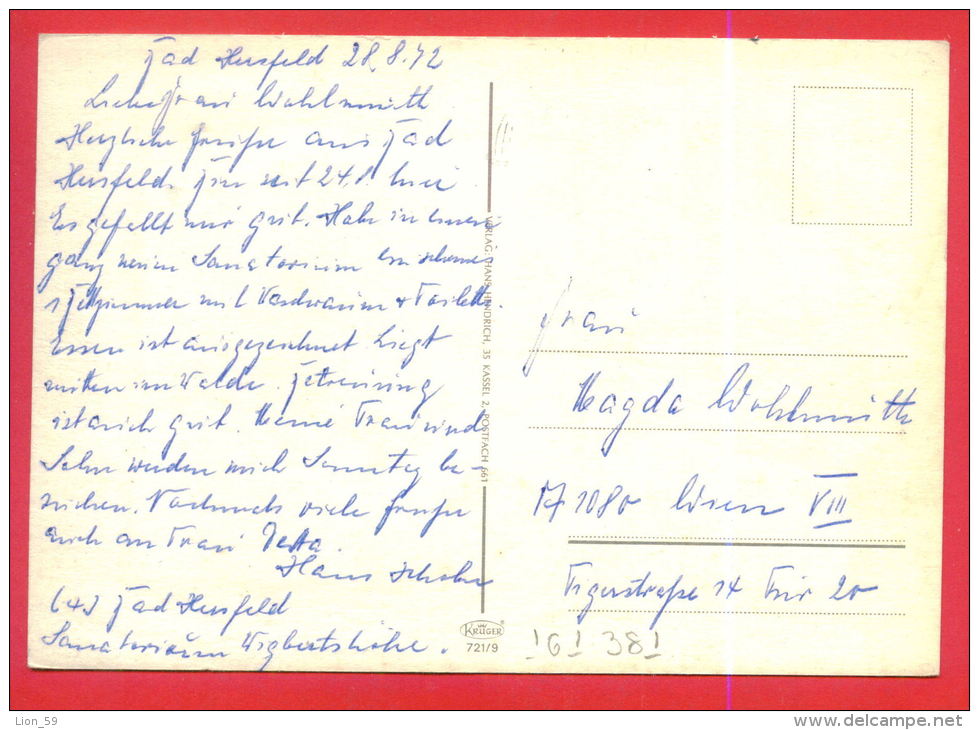 Bad Hersfeld 28.8.72
Liebe Frau Wohlmuth
Herzliche Grüße aus Bad
Hersfeld. Bin seit 24.8. hier
Es gefällt mir gut. Habe in einem
ganz neuen Sanatorium ein schönes
1 Bettzimmer mit Vordraum + Toilette.
Essen ist ausgezeichnet. Liegt
mitten im Walde. Betreuung
ist auch gut. Meine Frau und
Sohn werden mich Sonntag be-
suchen. Nochmals viele Grüße
auch an Frau
Hans
Bad Hersfeld
Sanatorium Wigbertshöhe.
VERLAG: HANS HENDRICH, 35 KASSEL 2, POSTFACH 661
KRÜGER
721/9
Frau
Magda Wohlmuth
A 1080 Wien VIII
Tigerstraße 14 Tür 20
161 381
Lion_59
http://www.delcampe.net